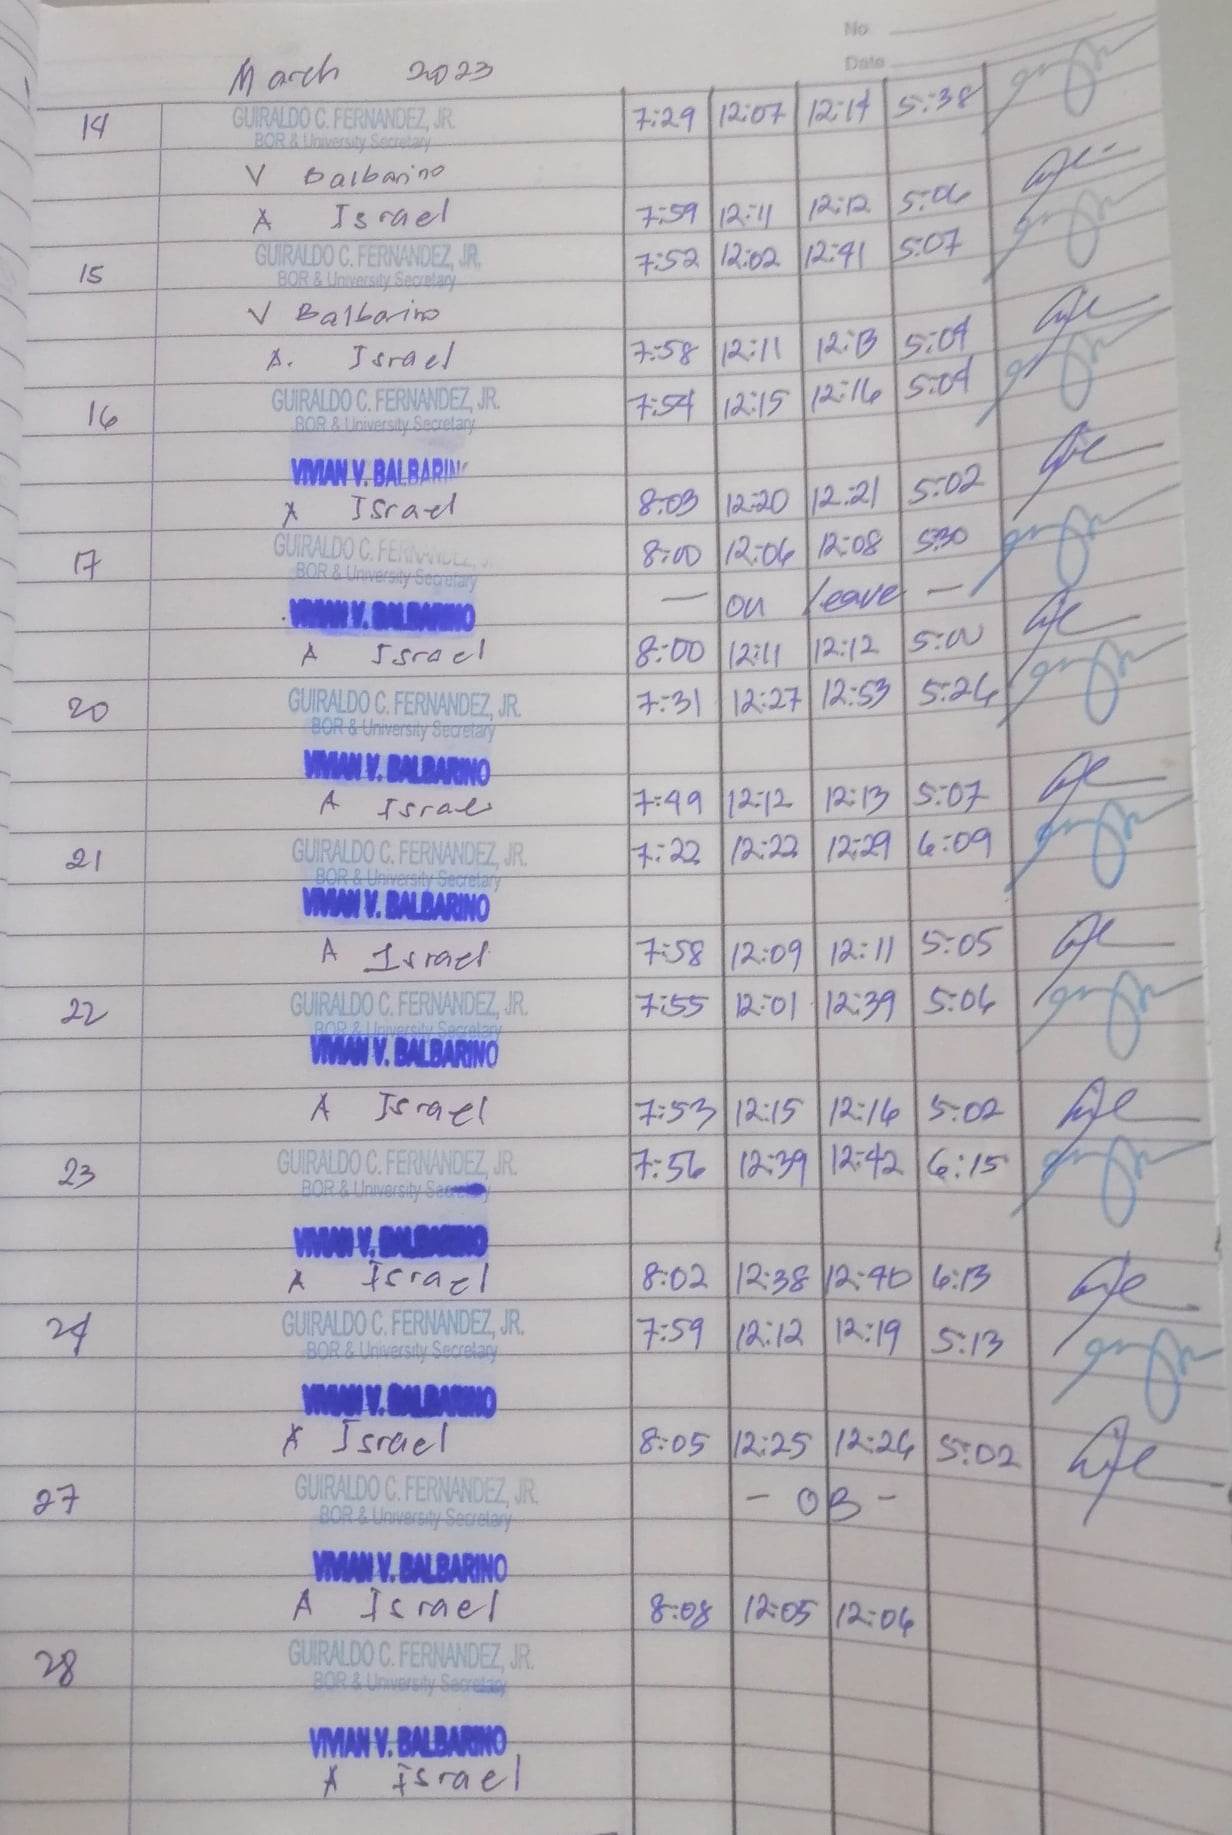 No
Date
March 2023
14 GUIRALDO C. FERNANDEZ, JR. 7:29 12:07 12:14 5:38
BOR & University Secretary
V Balbarino
A Israel 7:59 12:11 12:12 5:06
15 GUIRALDO C. FERNANDEZ, JR. 7:52 12:02 12:41 5:07
BOR & University Secretary
V Balbarino
A. Israel 7:58 12:11 12:13 5:04
16 GUIRALDO C. FERNANDEZ, JR. 7:54 12:15 12:16 5:04
BOR & University Secretary
VIVIAN V. BALBARIN
A Israel 8:03 12:20 12:21 5:02
17 GUIRALDO C. FERNANDEZ, J 8:00 12:06 12:08 5:30
BOR & University Secretary
VIVIAN V. BALBARINO — on leave —
A Israel 8:00 12:11 12:12 5:00
20 GUIRALDO C. FERNANDEZ, JR. 7:31 12:27 12:53 5:26
BOR & University Secretary
VIVIAN V. BALBARINO
A Israel 7:49 12:12 12:13 5:07
21 GUIRALDO C. FERNANDEZ, JR. 7:22 12:22 12:29 6:09
BOR & University Secretary
VIVIAN V. BALBARINO
A Israel 7:58 12:09 12:11 5:05
22 GUIRALDO C. FERNANDEZ, JR. 7:55 12:01 12:39 5:06
BOR & University Secretary
VIVIAN V. BALBARINO
A Israel 7:53 12:15 12:16 5:02
23 GUIRALDO C. FERNANDEZ, JR. 7:56 12:39 12:42 6:15
BOR & University Secretary
VIVIAN V. BALBARINO
A Israel 8:02 12:38 12:40 6:13
24 GUIRALDO C. FERNANDEZ, JR. 7:59 12:12 12:19 5:13
BOR & University Secretary
VIVIAN V. BALBARINO
A Israel 8:05 12:25 12:26 5:02
27 GUIRALDO C. FERNANDEZ, JR. - OB -
BOR & University Secretary
VIVIAN V. BALBARINO
A Israel 8:08 12:05 12:06
28 GUIRALDO C. FERNANDEZ, JR.
BOR & University Secretary
VIVIAN V. BALBARINO
A Israel